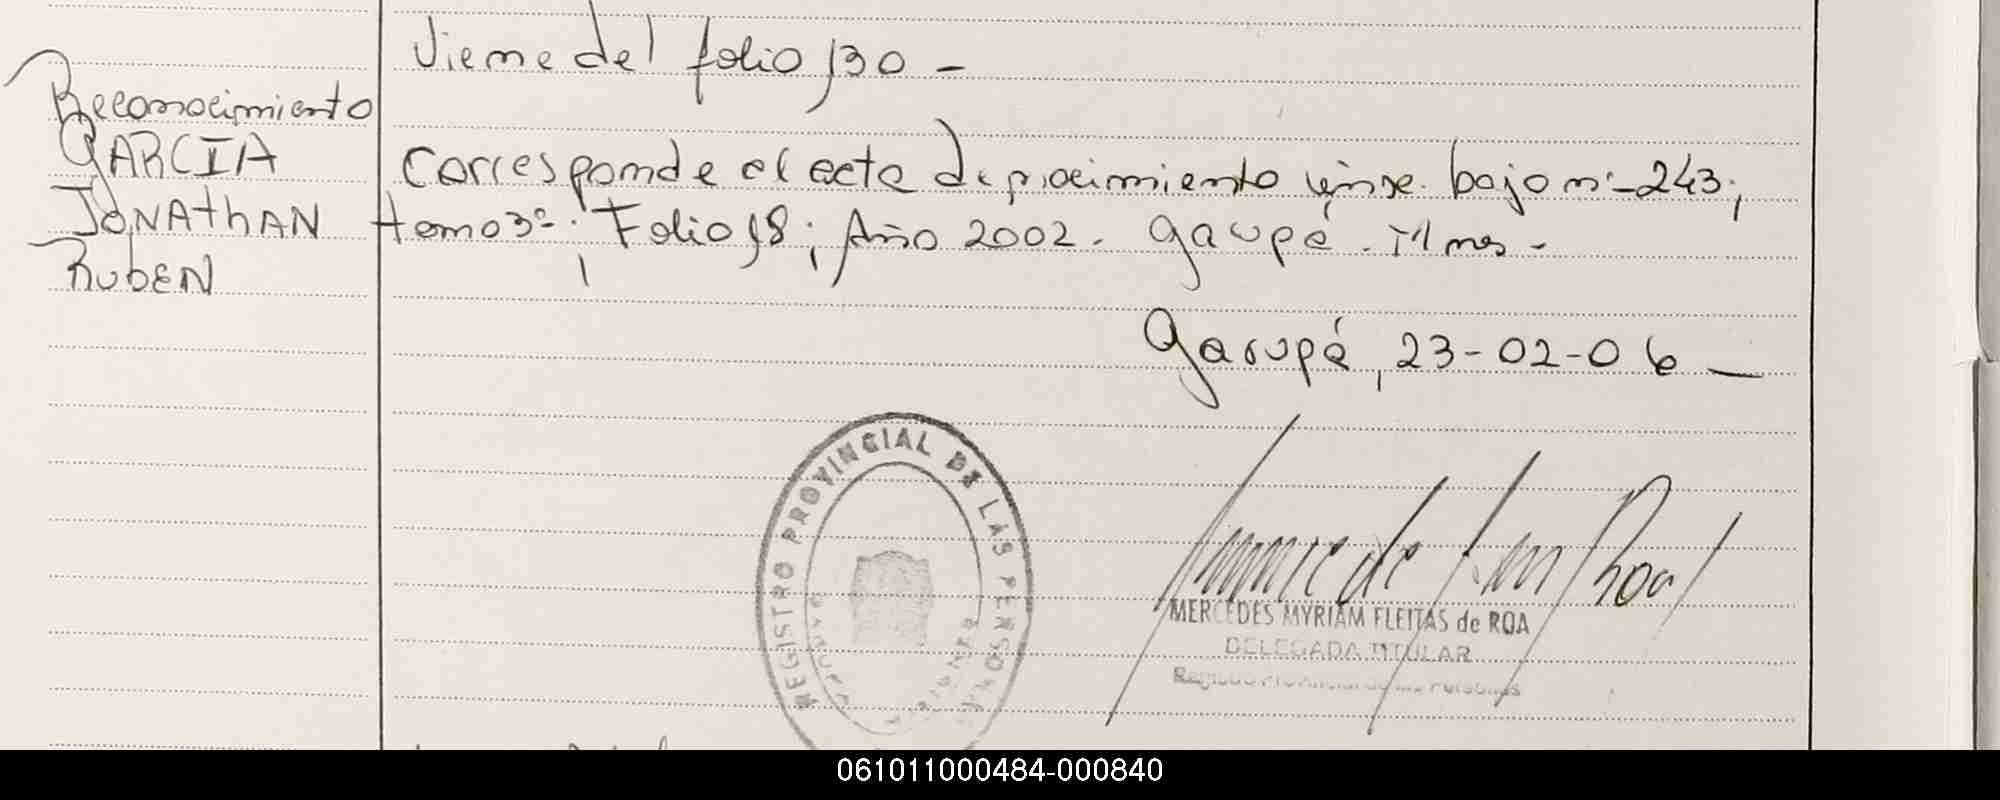 Viene del folio 130 -
Reconocimiento
GARCIA
JONAthAN
RubEN
Corresponde al acta de nacimiento bajo nº - 243;
tomo 3º; Folio 18; Año 2002. Garupá. Mnes -
Garupá, 23-02-06 —
REGISTRO PROVINCIAL DE LAS PERSONAS
MERCEDES MYRIAM FLEITAS de ROA
DELEGADA TITULAR
Registro Provincial de las Personas
061011000484-000840